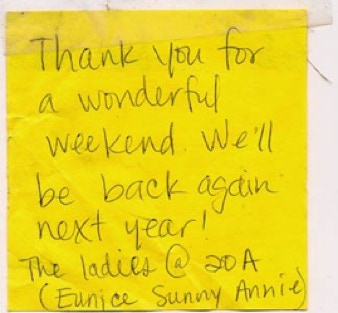 Thank you for
a wonderful
weekend. We'll
be back again
next year!
The ladies @ 20A
(Eunice Sunny Annie)